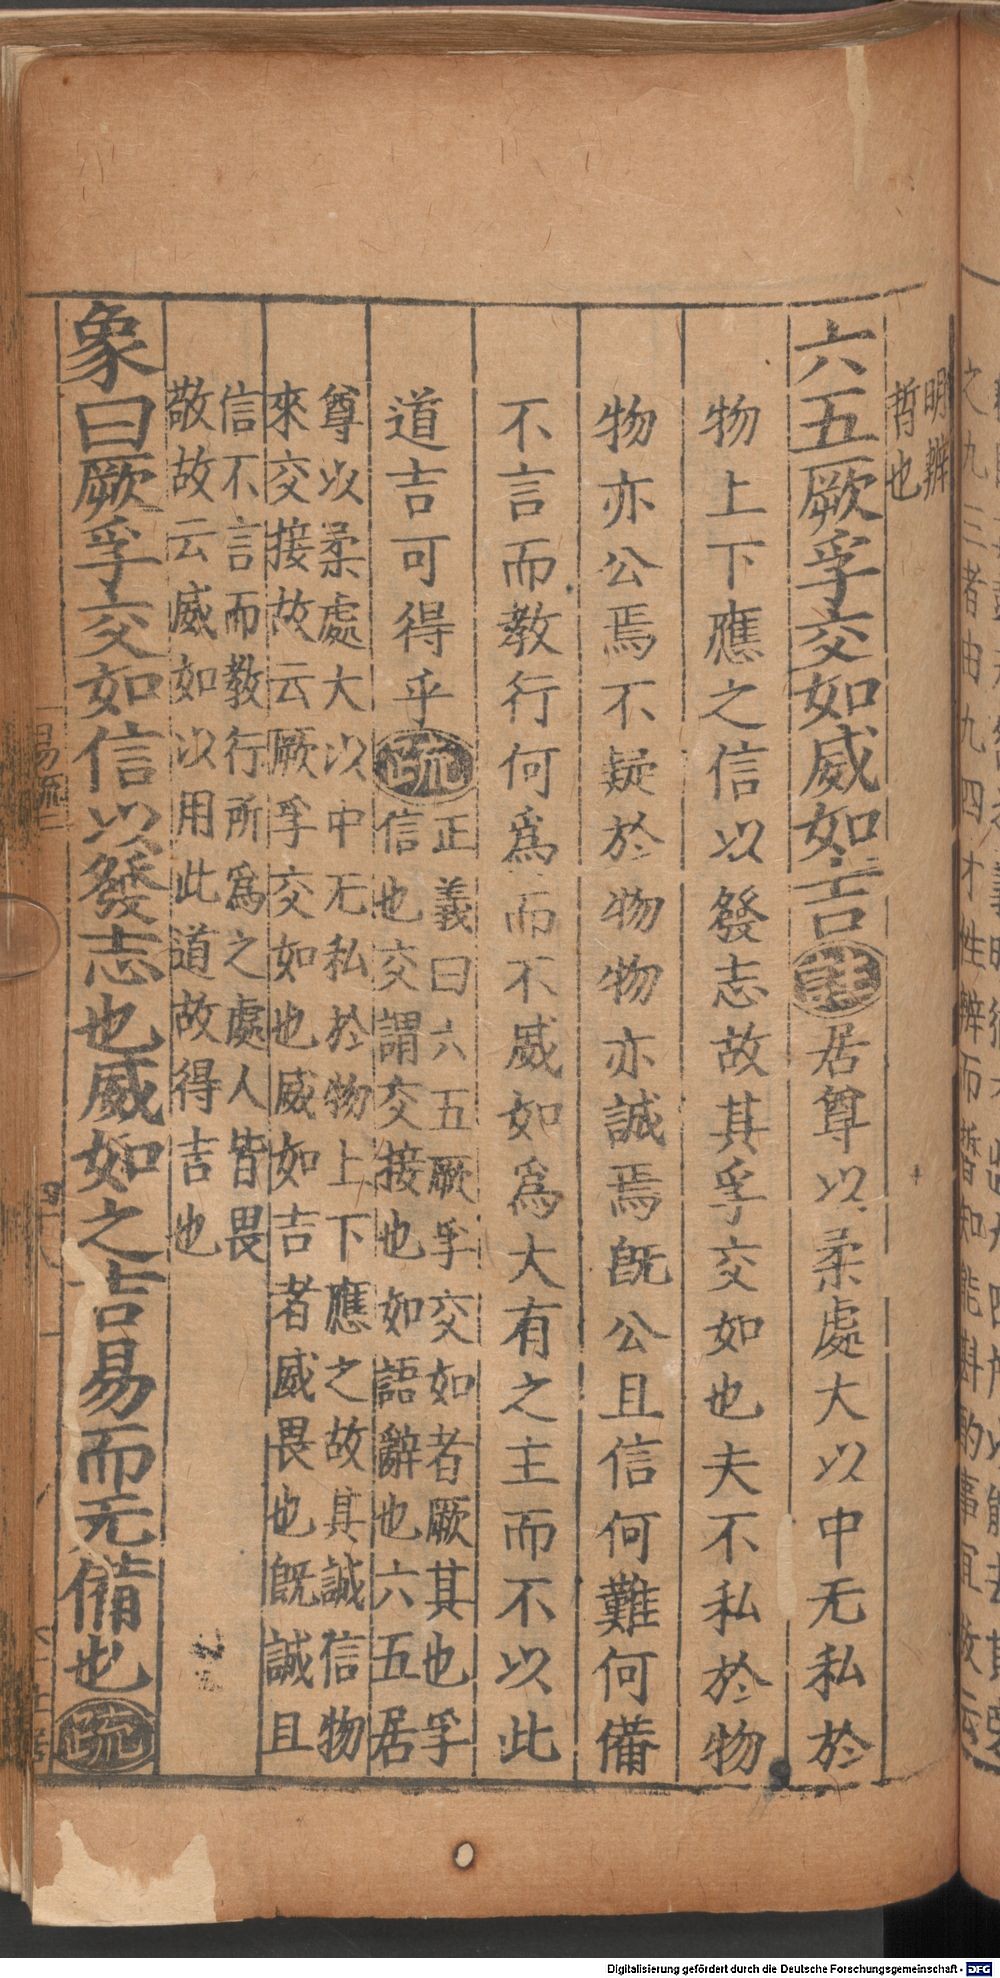 明辨
哲也
六五厥孚交如威如吉註居尊以柔處大以中无私於
物上下應之信以發志故其孚交如也夫不私於物
物亦公焉不疑於物物亦誠焉既公且信何難何備
不言而教行何為而不威如為大有之主而不以此
道吉可得乎疏正義曰六五厥孚交如者厥其也孚
信也交謂交接也如語辭也六五居
尊以柔處大以中无私於物上下應之故其誠信物
來交接故云厥孚交如也威如吉者威畏也既誠且
信不言而教行所為之處人皆畏
敬故云威如以用此道故得吉也
象曰厥孚交如信以發志也威如之吉易而无備也疏
易疏二
Digitalisierung gefördert durch die Deutsche Forschungsgemeinschaft - DFG